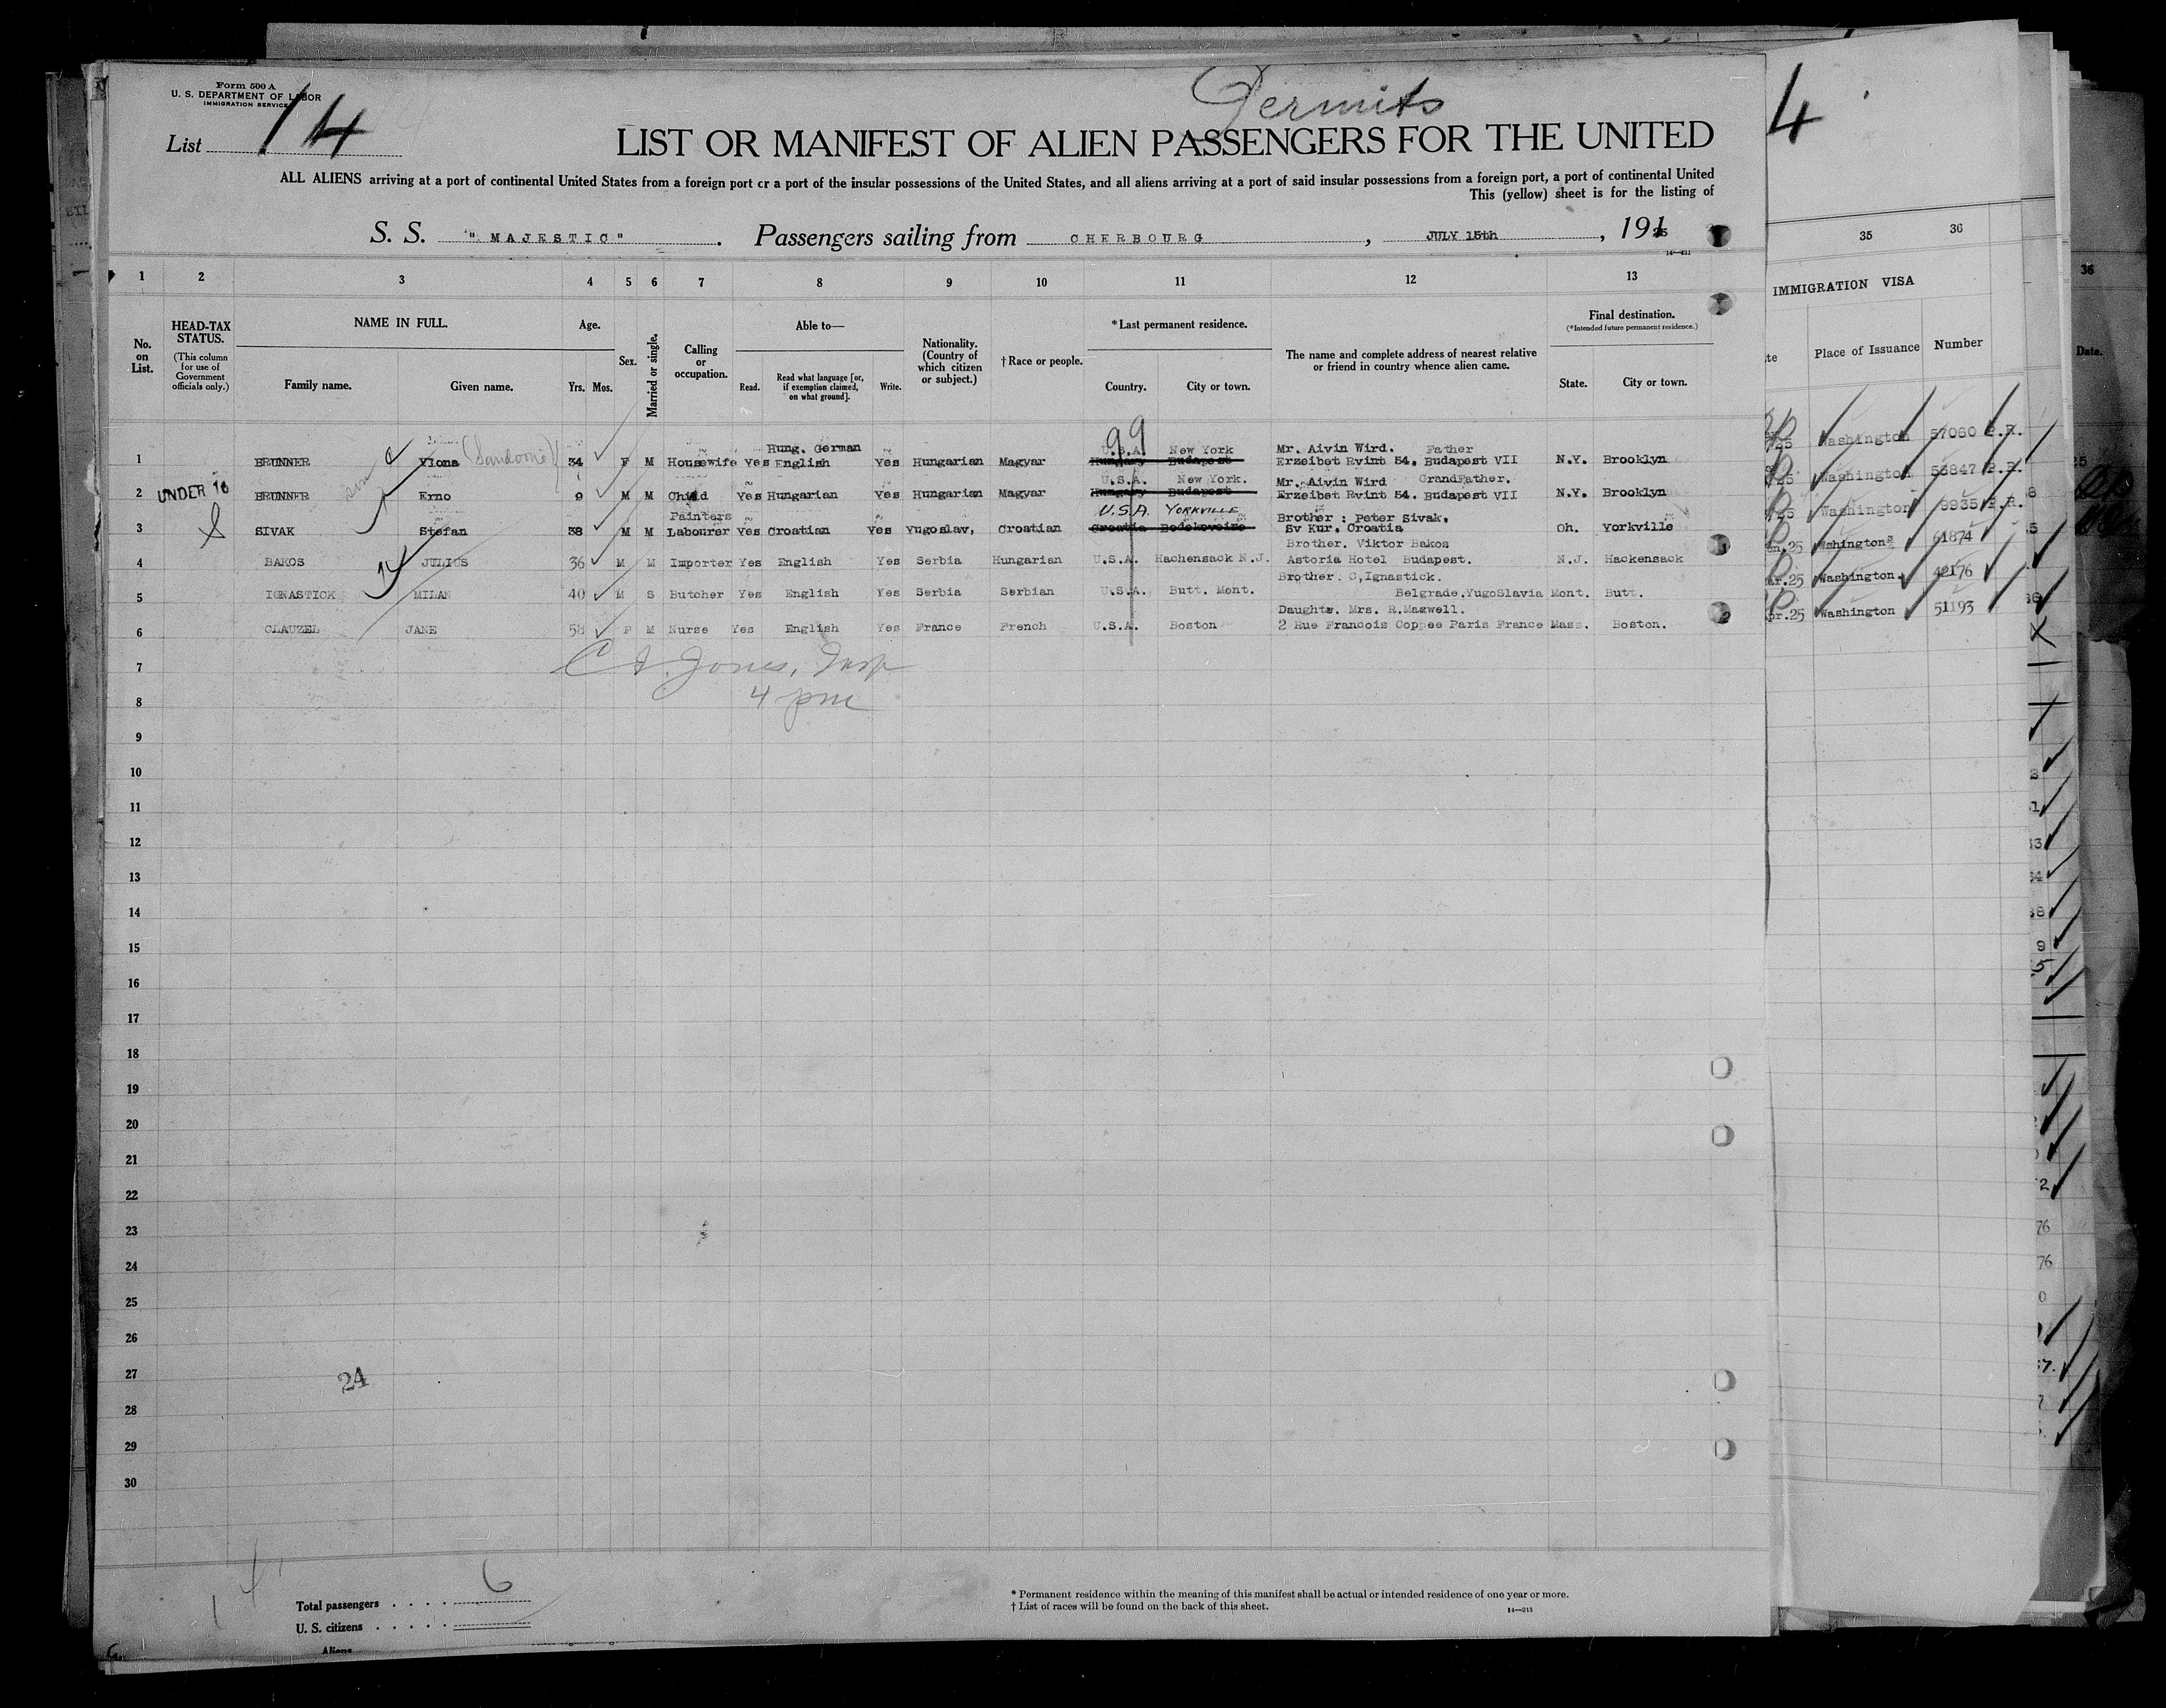 Form 500 A
U. S. DEPARTMENT OF LABOR
IMMIGRATION SERVICE
List 14
Permits
LIST OR MANIFEST OF ALIEN PASSENGERS FOR THE UNITED
ALL ALIENS arriving at a port of continental United States from a foreign port or a port of the insular possessions of the United States, and all aliens arriving at a port of said insular possessions from a foreign port, a port of continental United
This (yellow) sheet is for the listing of
S. S. "MAJESTIC". Passengers sailing from CHERBOURG, JULY 15th, 1925
1 2 3 4 5 6 7 8 9 10 11 12 13
No. on List.
HEAD-TAX STATUS.
(This column for use of Government officials only.)
NAME IN FULL.
Family name. Given name.
Age.
Yrs. Mos.
Sex.
Married or single.
Calling or occupation.
Able to—
Read. Read what language [or, if exemption claimed, on what ground]. Write.
Nationality. (Country of which citizen or subject.)
†Race or people.
*Last permanent residence.
Country. City or town.
The name and complete address of nearest relative or friend in country whence alien came.
Final destination.
(*Intended future permanent residence.)
State. City or town.
99
Hung. German U.S.A. New York Mr. Aivin Wird. Father
1 BRUNNER Ylona (Sandorné) 34 F M Housewife Yes English Yes Hungarian Magyar Hungary Budapest Erzeibet Rvint 54. Budapest VII N.Y. Brooklyn
U.S.A. New York. Mr. Aivin Wird GrandFather.
2 UNDER 16 BRUNNER Erno 9 M M Child Yes Hungarian Yes Hungarian Magyar Hungary Budapest Erzeibet Rvint 54. Budapest VII N.Y. Brooklyn
Painters U.S.A. YORKVILLE Brother : Peter Sivak.
3 SIVAK Stefan 38 M M Labourer Yes Croatian Yes Yugoslav, Croatian Croatia Bedekovcine Sv Kur. Croatia Oh. Yorkville
Brother. Viktor Bakos
4 BAKOS JULIUS 36 M M Importer Yes English Yes Serbia Hungarian U.S.A. Hachensack N.J. Astoria Hotel Budapest. N.J. Hackensack
Brother. C,Ignastick.
5 IGNASTICK MILAN 40 M S Butcher Yes English Yes Serbia Serbian U.S.A. Butt. Mont. Belgrade.YugoSlavia Mont. Butt.
Daughte. Mrs. R.Maxwell.
6 CLAUZEL JANE 58 F M Nurse Yes English Yes France French U.S.A. Boston 2 Rue Francois Coppee Paris France Mass. Boston.
7
C I Jones, Insp
8
4 pm
9
10
11
12
13
14
15
16
17
18
19
20
21
22
23
24
25
26
27
24
28
29
30
14
Total passengers . . . . 6
U. S. citizens . . . . .
Aliens
* Permanent residence within the meaning of this manifest shall be actual or intended residence of one year or more.
† List of races will be found on the back of this sheet.
14—213
4
35 36
IMMIGRATION VISA
Place of Issuance Number
25 Washington 57060 P.R.
25 Washington 56847 P.R.
25 Washington 9935 P.R.
25 Washington 61874
25 Washington. 42176
25 Washington 51193
36
Date.